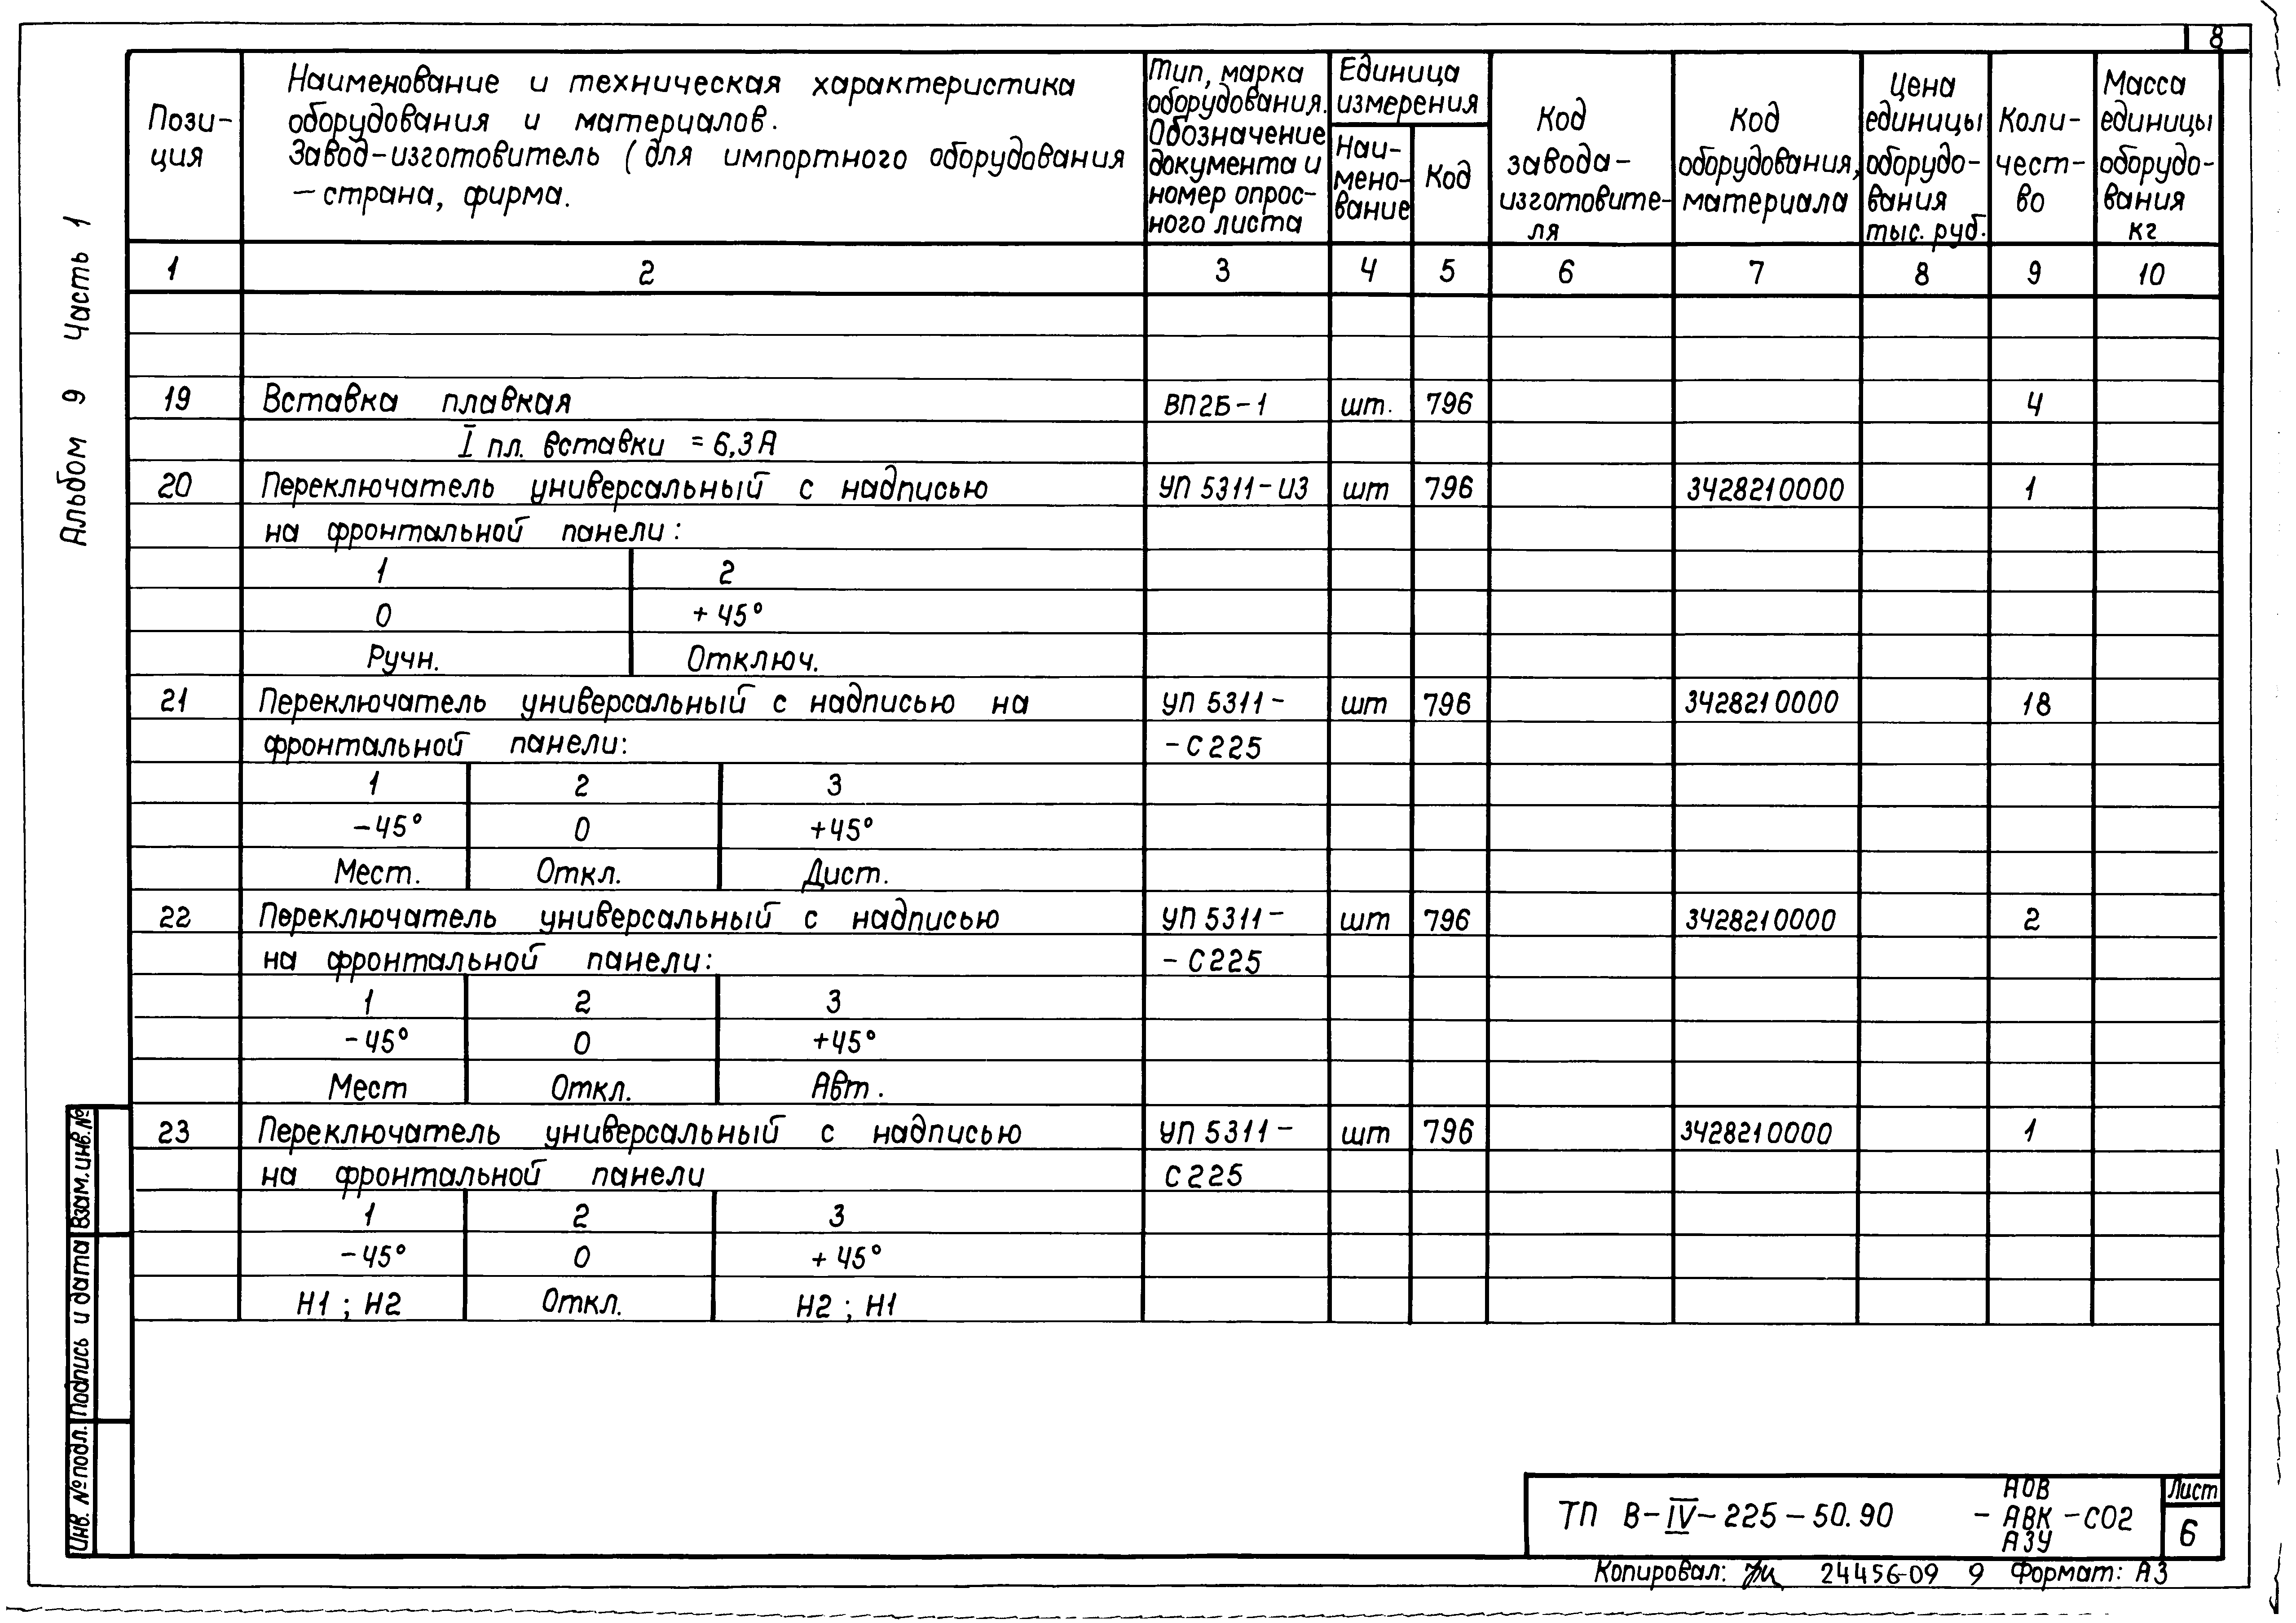 8
Альбом 9 Часть 1
Пози-
ция
Наименование и техническая характеристика
оборудования и материалов.
Завод-изготовитель (для импортного оборудования
-страна, фирма.
Тип, марка
оборудования.
Обозначение
документа и
номер опрос-
ного листа
Единица
измерения
Наи-
мено-
вание
Код
Код
завода-
изготовите-
ля
Код
оборудования,
материала
Цена
единицы
оборудо-
вания
тыс. руб.
Коли-
чест-
во
Масса
единицы
оборудо-
вания
кг
1 2 3 4 5 6 7 8 9 10
19 Вставка плавкая ВП2Б-1 шт. 796 4
I пл. вставки = 6,3А
20 Переключатель универсальный с надписью УП 5311-И3 шт 796 3428210000 1
на фронтальной панели:
1 2
0 +45°
Ручн. Отключ.
21 Переключатель универсальный с надписью на УП 5311- шт 796 3428210000 18
фронтальной панели: -С225
1 2 3
-45° 0 +45°
Мест. Откл. Дист.
22 Переключатель универсальный с надписью УП 5311- шт 796 3428210000 2
на фронтальной панели: -С225
1 2 3
-45° 0 +45°
Мест Откл. Авт.
23 Переключатель универсальный с надписью УП 5311- шт 796 3428210000 1
на фронтальной панели С225
1 2 3
-45° 0 +45°
Н1 ; Н2 Откл. Н2 ; Н1
Взам.инв.№
Подпись и дата
Инв. № подл.
ТП В-IV-225-50.90
АОВ
- АВК -СО2
АЗУ
Лист
6
Копировал: 24456-09 9 Формат: А3